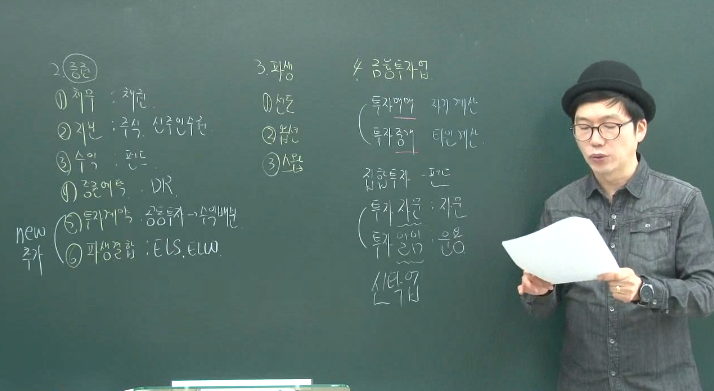 2. 증권
① 채무 : 채권
② 지분 : 주식, 신주인수권
③ 수익 : 펀드
④ 증권예탁 DR
⑤ 투자계약 공동투자→수익배분
⑥ 파생결합 : ELS, ELW
new
추가
3. 파생
① 선도
② 옵션
③ 스왑
4. 금융투자업
투자매매 자기계산
투자중개 타인계산
집합투자 - 펀드
투자자문 : 자문
투자일임 : 운용
신탁업